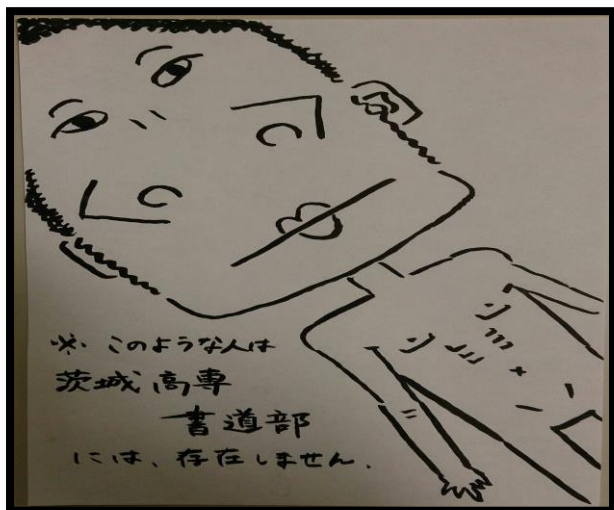 ※ このような人は
茨城高専
書道部
には、存在しません.